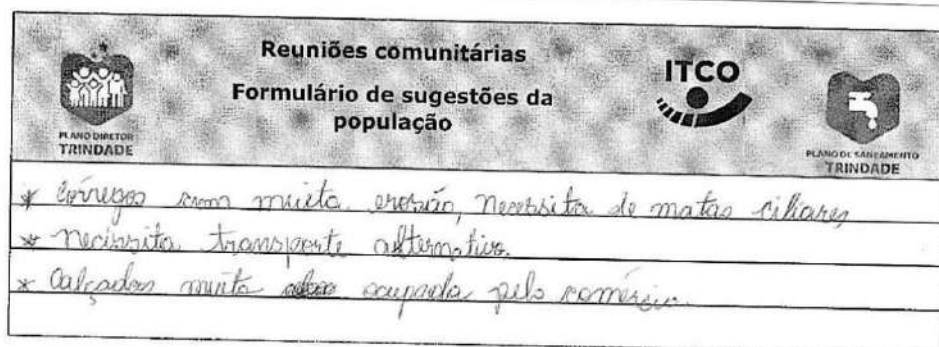 Reuniões comunitárias
Formulário de sugestões da
população
PLANO DIRETOR
TRINDADE
ITCO
PLANO DE SANEAMENTO
TRINDADE
* Córregos com muita erosão, necessita de matas ciliares,
* necissita transporte alternativo.
* Calçadas muito ocupada pelo comércio.